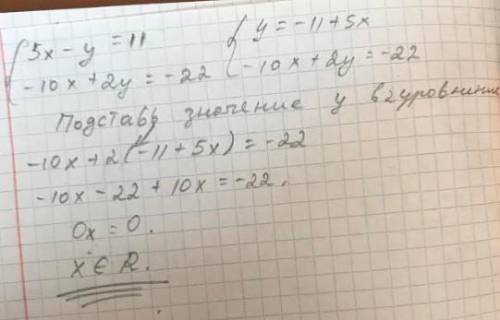 {5x - y = 11 {y = -11 + 5x
-10x + 2y = -22 -10x + 2y = -22
Подставв значение y в 2 уровнение
-10x + 2(-11 + 5x) = -22
-10x - 22 + 10x = -22.
0x = 0.
x ∈ R.